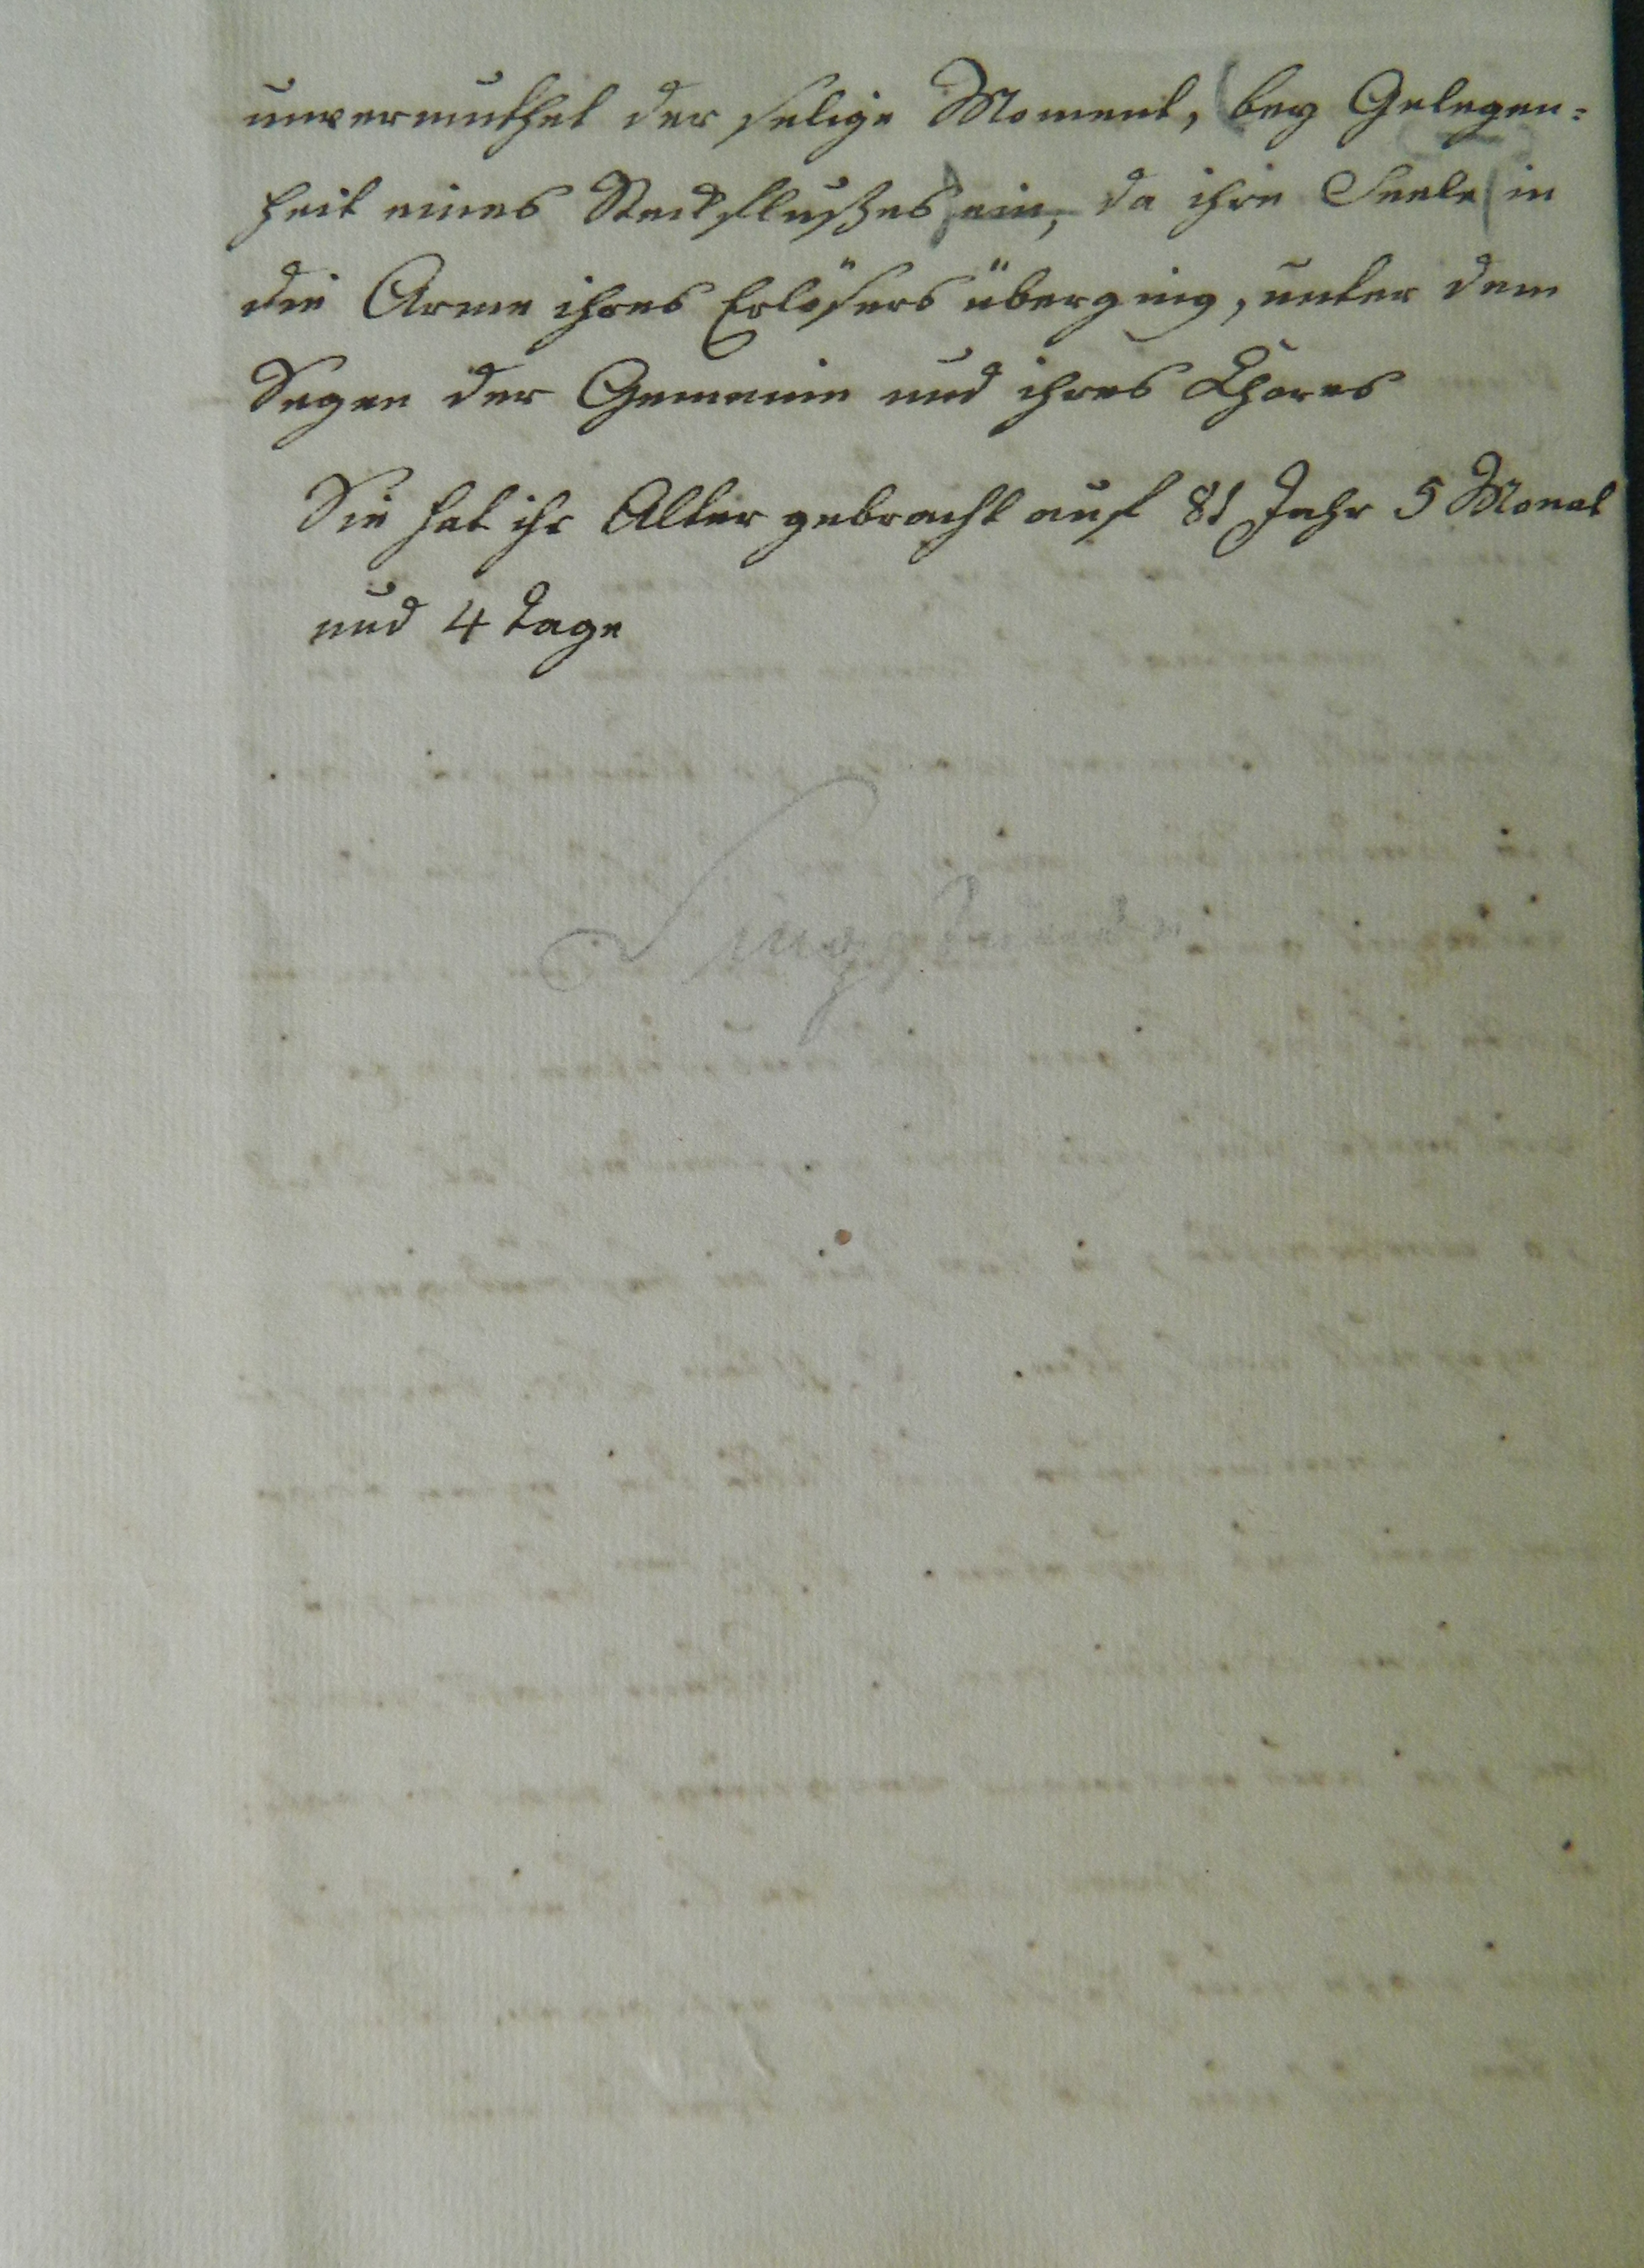 unvermuthet der selige Moment, (bey Gelegen=
heit eines Steckflußes) ein, da ihre Seele in
die Arme ihres Erlösers überging, unter dem
Segen der Gemeine und ihres Chores
Sie hat ihr Alter gebracht auf 81 Jahr 5 Monat
und 4 Tage